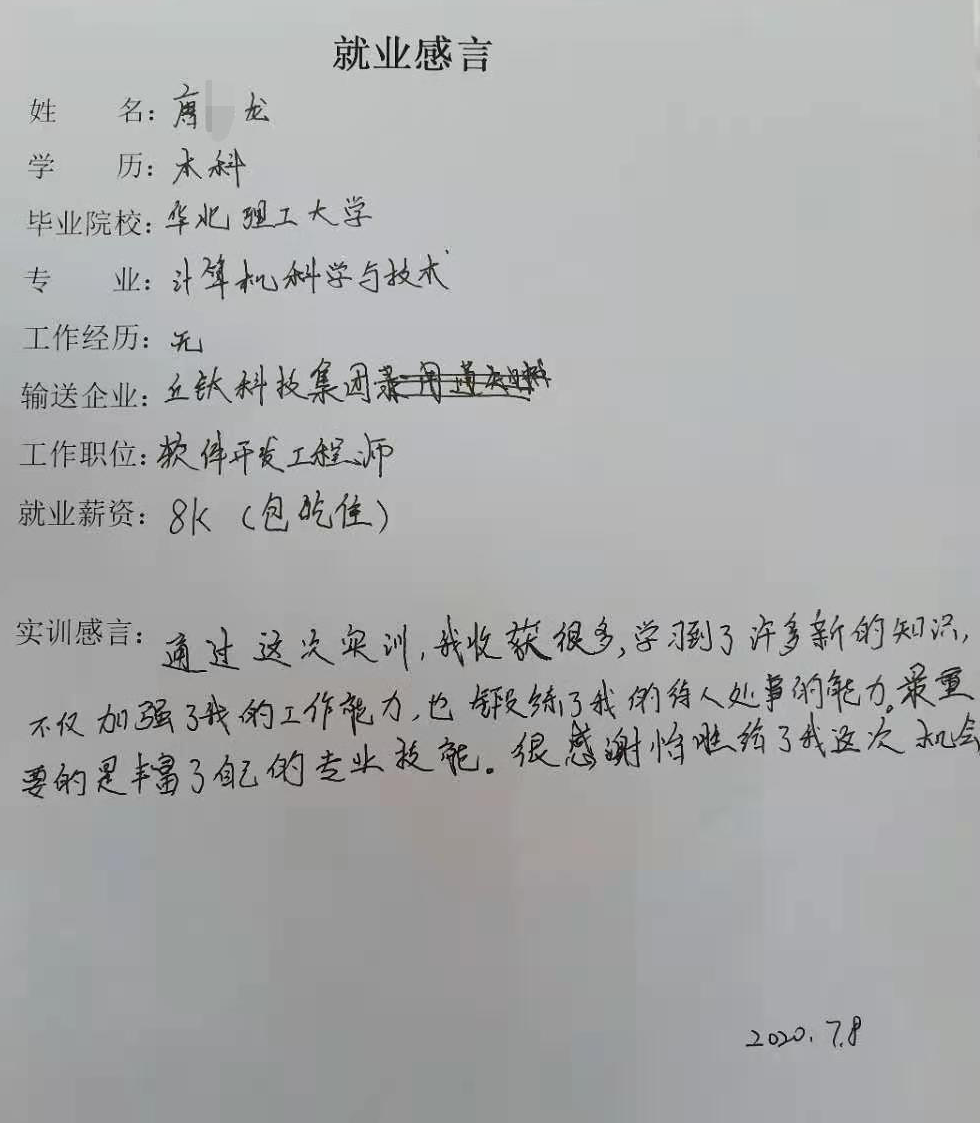 就业感言
姓 名：唐 龙
学 历：本科
毕业院校：华北理工大学
专 业：计算机科学与技术
工作经历：无
输送企业：丘钛科技集团
工作职位：软件开发工程师
就业薪资：8K（包吃住）
实训感言：通过这次实训，我收获很多，学习到了许多新的知识，
不仅加强了我的工作能力，也锻练了我的待人处事的能力。最重
要的是丰富了自己的专业技能。很感谢 给了我这次机会
2020.7.8